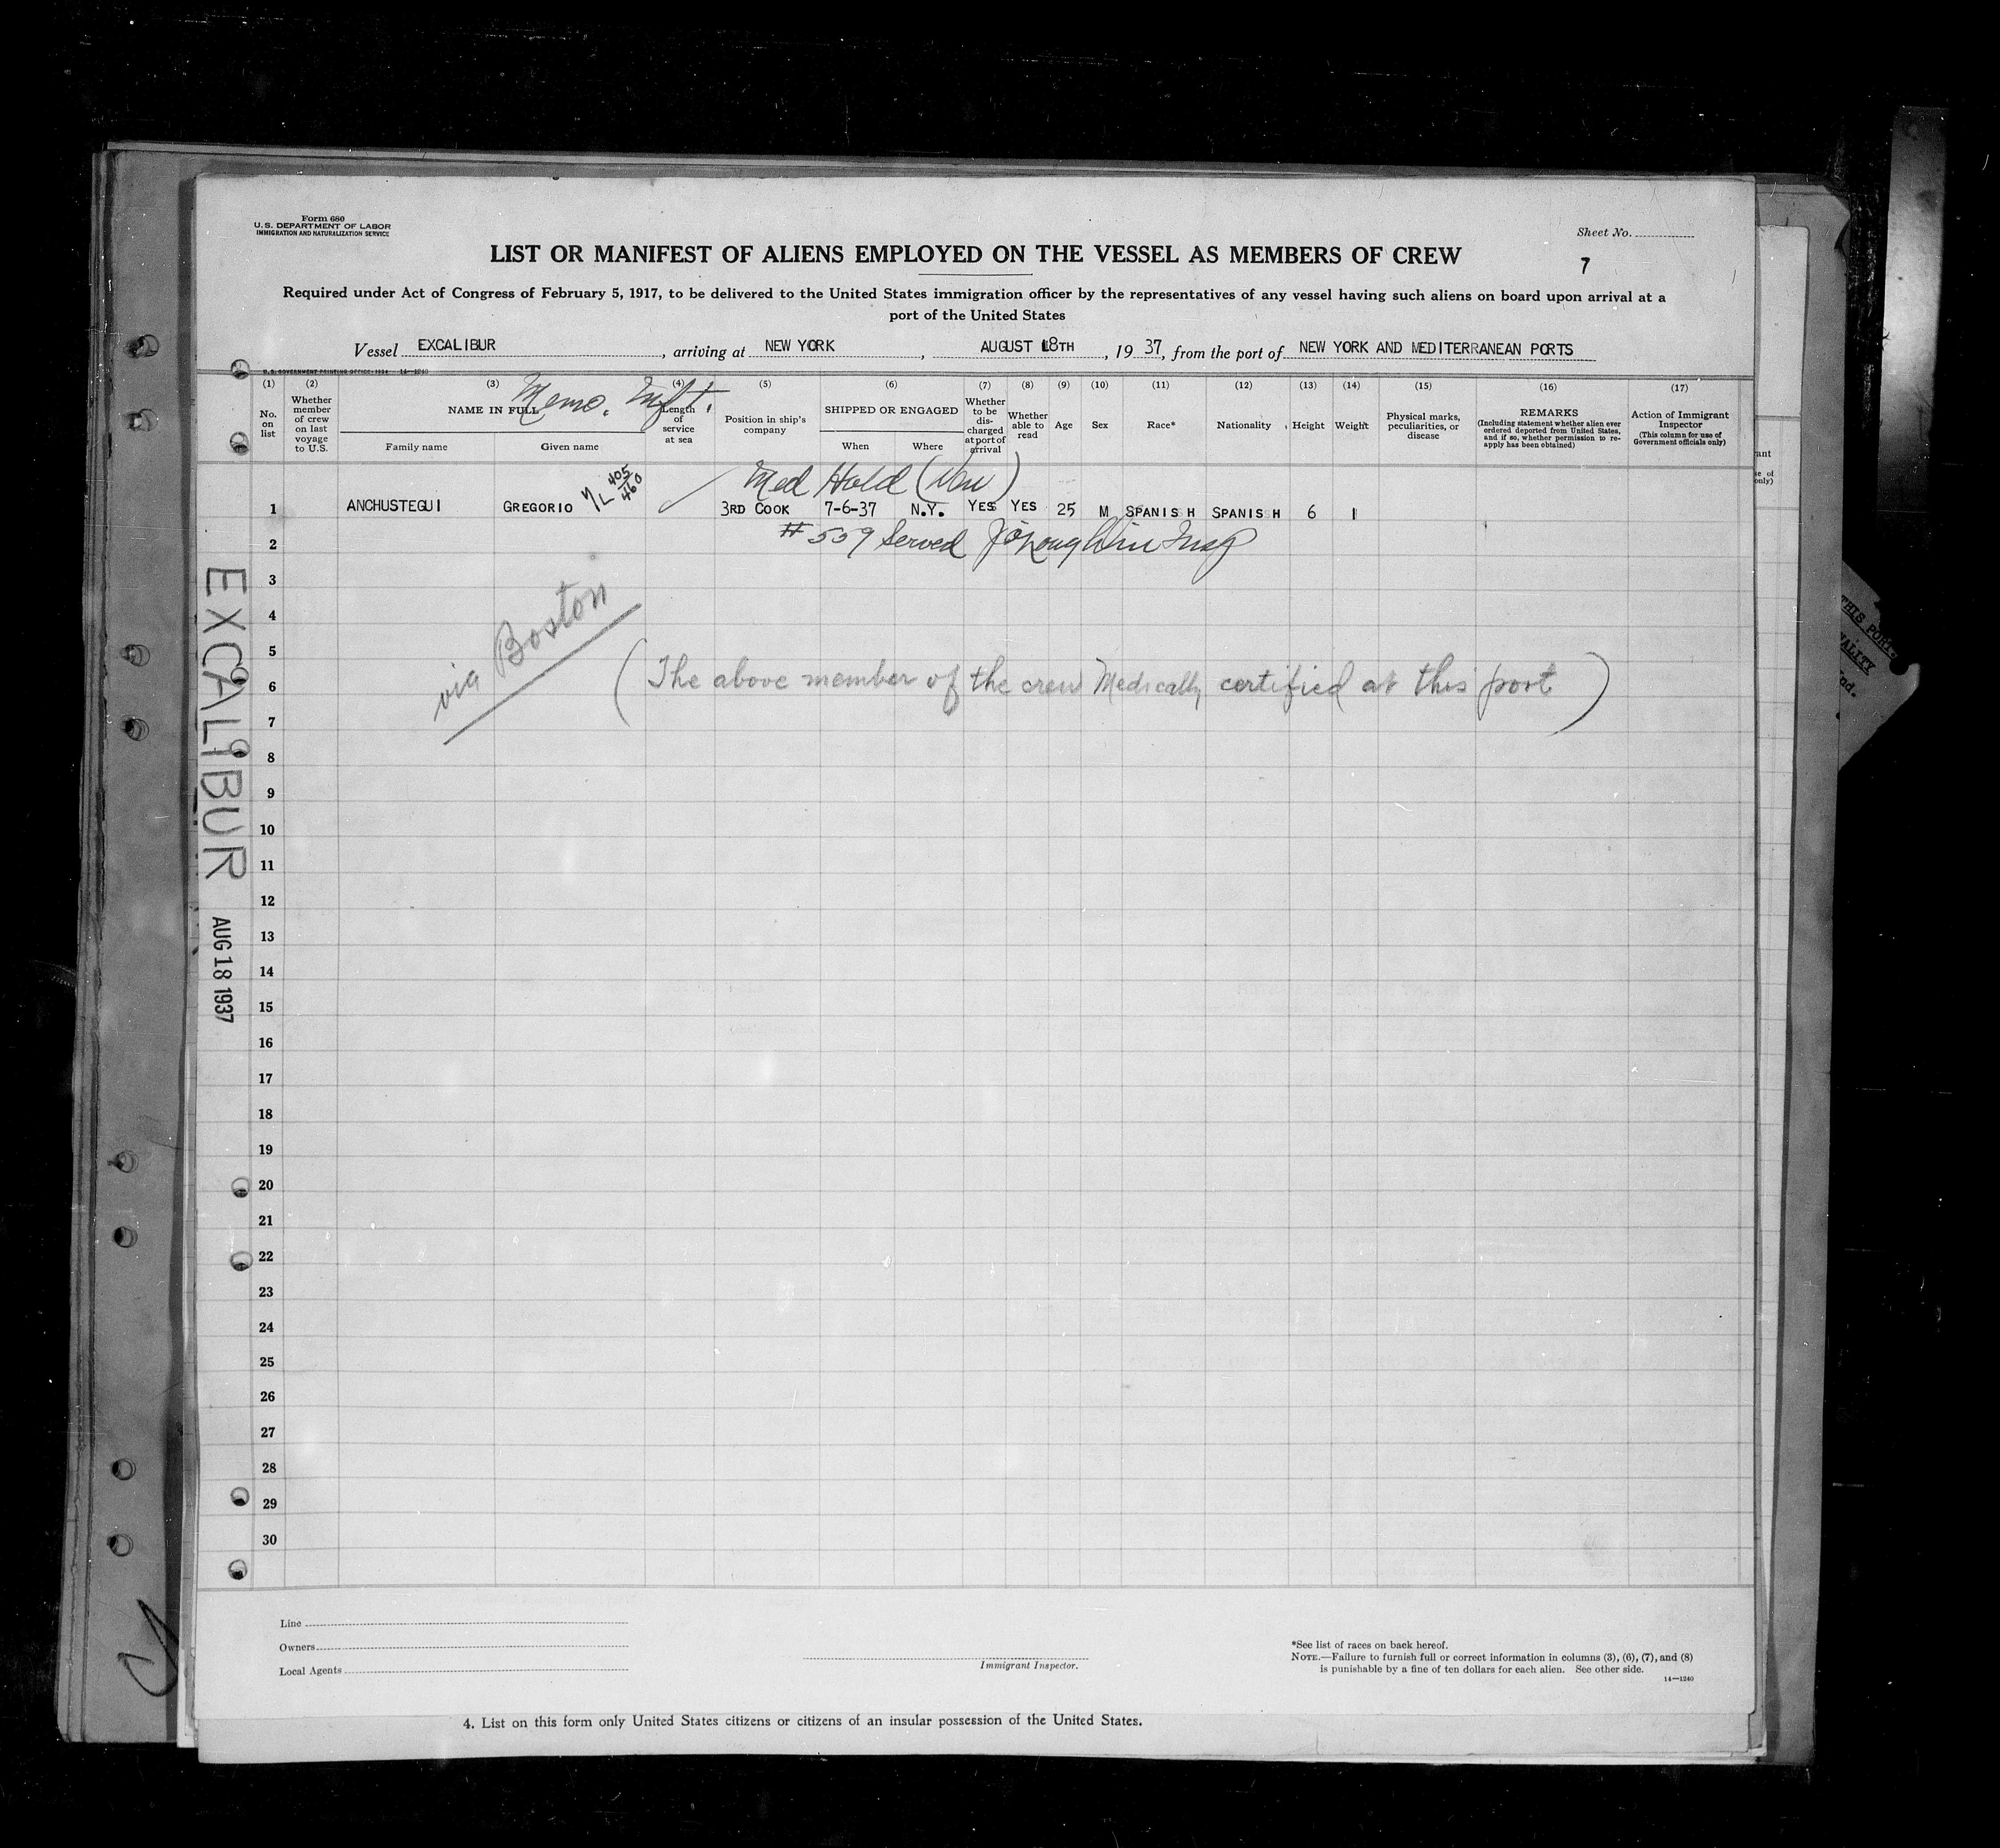 Form 680
U. S. DEPARTMENT OF LABOR
IMMIGRATION AND NATURALIZATION SERVICE
Sheet No.
7
LIST OR MANIFEST OF ALIENS EMPLOYED ON THE VESSEL AS MEMBERS OF CREW
Required under Act of Congress of February 5, 1917, to be delivered to the United States immigration officer by the representatives of any vessel having such aliens on board upon arrival at a
port of the United States
Vessel EXCALIBUR, arriving at NEW YORK, AUGUST 18TH, 1937, from the port of NEW YORK AND MEDITERRANEAN PORTS
U. S. GOVERNMENT PRINTING OFFICE: 1934 14—1240
Memo. Mft.
(1) No. on list
(2) Whether member of crew on last voyage to U.S.
(3) NAME IN FULL
Family name
Given name
(4) Length of service at sea
(5) Position in ship's company
(6) SHIPPED OR ENGAGED
When
Where
(7) Whether to be discharged at port of arrival
(8) Whether able to read
(9) Age
(10) Sex
(11) Race*
(12) Nationality
(13) Height
(14) Weight
(15) Physical marks, peculiarities, or disease
(16) REMARKS
(Including statement whether alien ever ordered deported from United States, and if so, whether permission to re-apply has been obtained)
(17) Action of Immigrant Inspector
(This column for use of Government officials only)
Med Hold (Ven)
1 ANCHUSTEGUI GREGORIO 405/460 3RD COOK 7-6-37 N.Y. YES YES 25 M SPANISH SPANISH 6 1
2 #559 Served J O'Loughlin Insp
3
4
5
via Boston
6 (The above member of the crew Medically certified at this port)
7
8
9
10
11
12
13
14
15
16
17
18
19
20
21
22
23
24
25
26
27
28
29
30
EXCALIBUR
AUG 18 1937
Line
Owners
Local Agents
Immigrant Inspector.
*See list of races on back hereof.
NOTE.—Failure to furnish full or correct information in columns (3), (6), (7), and (8)
is punishable by a fine of ten dollars for each alien. See other side.
14—1240
4. List on this form only United States citizens or citizens of an insular possession of the United States.
THIS PORT